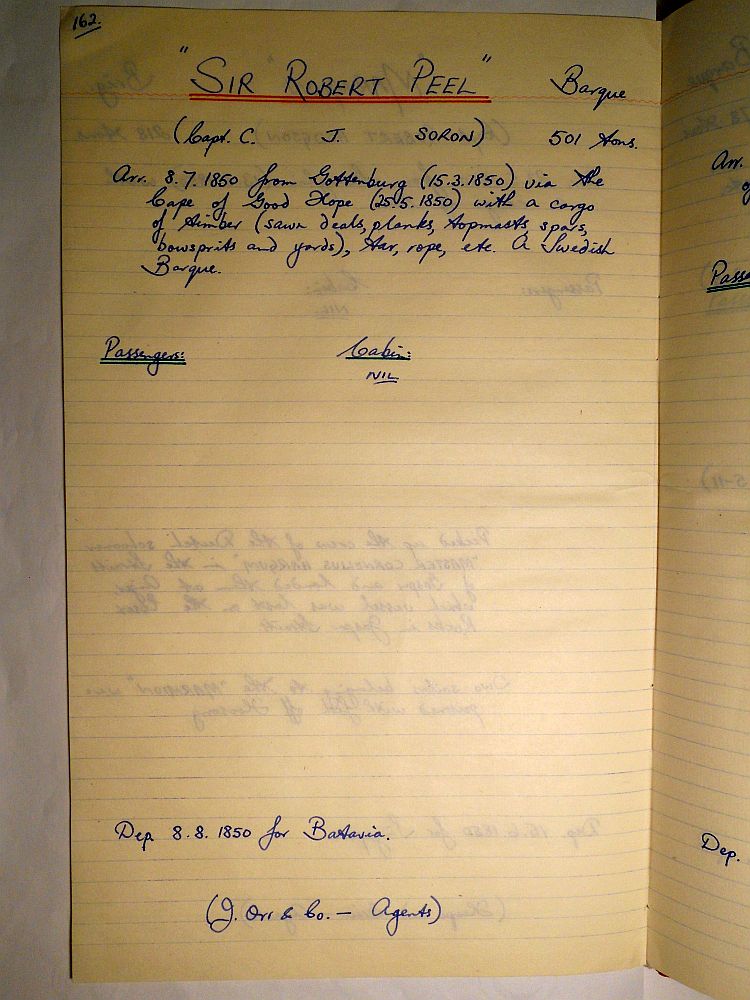 162.
"SIR ROBERT PEEL" Barque
(Capt. C. J. SORON) 501 tons.
Arr. 8.7.1850 from Gottenburg (15.3.1850) via the
Cape of Good Hope (25.5.1850) with a cargo
of timber (sawn deals, planks, topmasts, spars,
bowsprits and yards), tar, rope, etc. A Swedish
Barque.
Passengers: Cabin:
NIL
Dep. 8.8.1850 for Batavia.
(J. Orr & Co. — Agents)
Arr.
Dep.